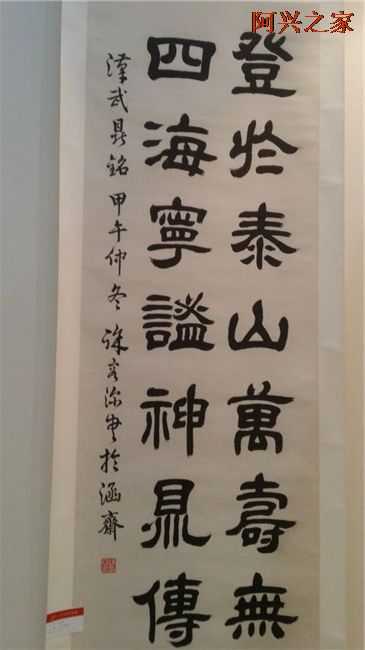 阿兴之家
登於泰山萬壽無
四海寧謐神鼎傳
漢武鼎銘 甲午仲冬 於涵齋